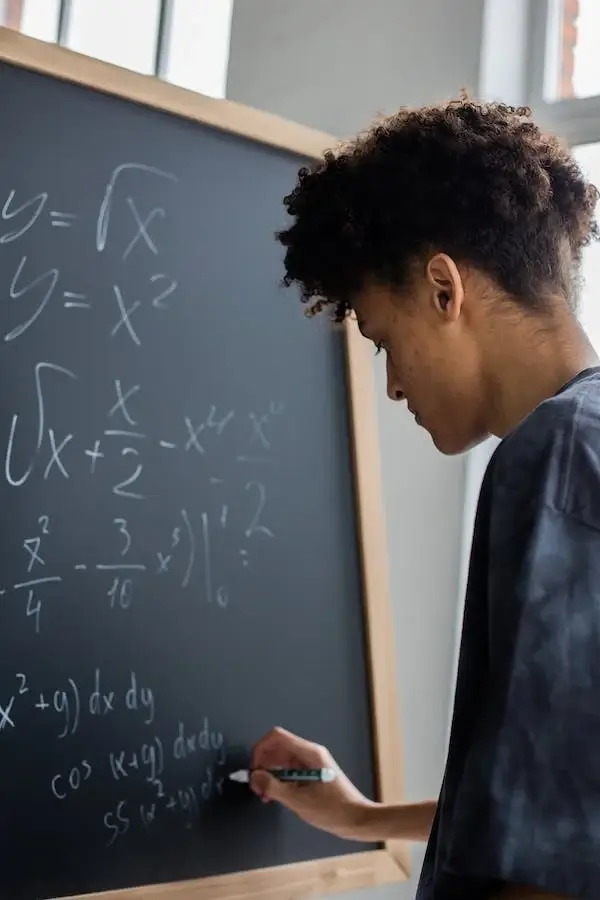 y = √x
y = x²
√x + x/2 - x⁴ x⁴/2
x²/4 - 3/10 x⁵)|¹₀
x² + y) dx dy
cos (x+y) dxdy
SS (x² + y) dx